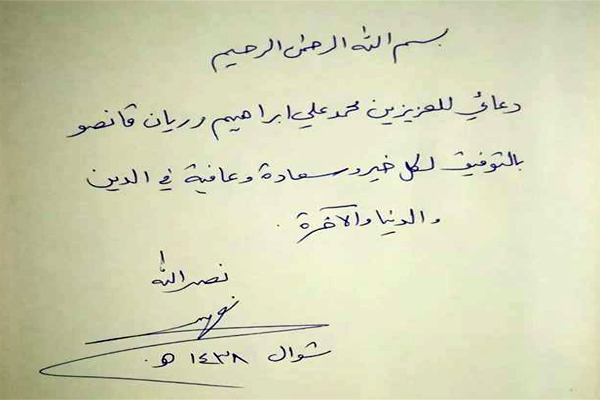 بسم الله الرحمن الرحيم
دعائي للعزيزين محمد علي ابراهيم وريان قانصو
بالتوفيق لكل خير وسعادة وعافية في الدين
والدنيا والآخرة .
نصر الله
شوال ١٤٣٨ هـ.